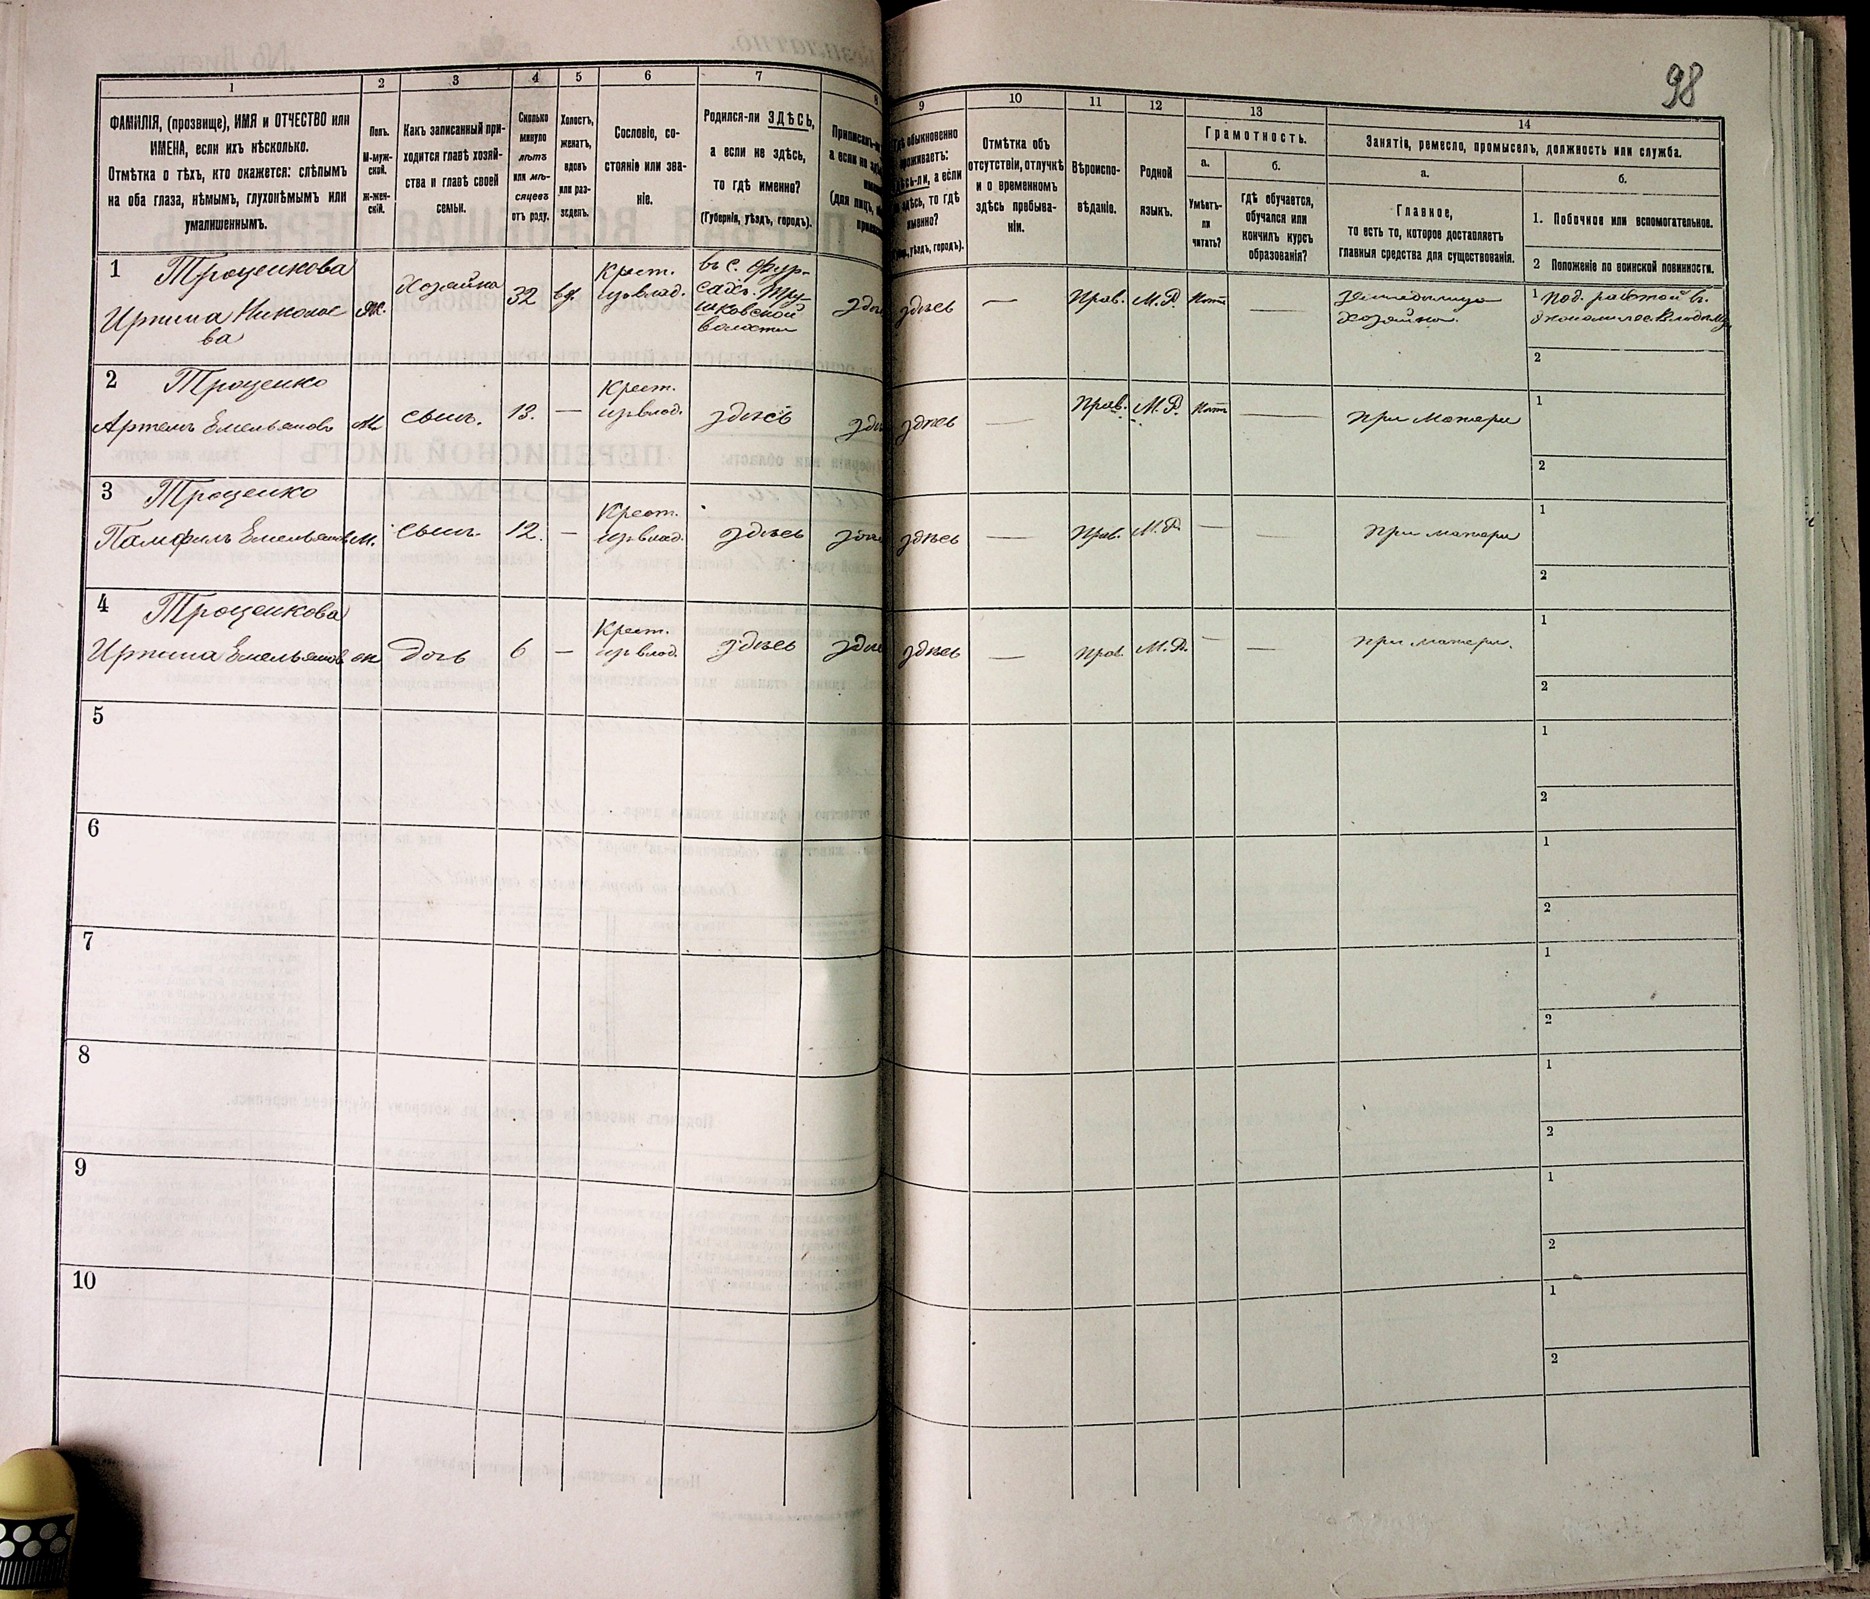 98
1
2
3
4
5
6
7
8
9
10
11
12
13
14
ФАМИЛІЯ, (прозвище), ИМЯ и ОТЧЕСТВО или
ИМЕНА, если ихъ нѣсколько.
Отмѣтка о тѣхъ, кто окажется: слѣпымъ
на оба глаза, нѣмымъ, глухонѣмымъ или
умалишеннымъ.
Полъ.
М-муж-
ской.
ж-жен-
скій.
Какъ записанный при-
ходится главѣ хозяй-
ства и главѣ своей
семьи.
Сколько
минуло
лѣтъ
или мѣ-
сяцевъ
отъ роду.
Холостъ,
женатъ,
вдовъ
или раз-
веденъ.
Сословіе, со-
стояніе или зва-
ніе.
Родился-ли ЗДѢСЬ,
а если не здѣсь,
то гдѣ именно?
(Губернія, уѣздъ, городъ).
обыкновенно
а если
здѣсь, то гдѣ
именно?
уѣздъ, городъ).
Отмѣтка объ
отсутствіи, отлучкѣ
и о временномъ
здѣсь пребыва-
ніи.
Вѣроиспо-
вѣданіе.
Родной
языкъ.
Грамотность.
а.
б.
Умѣетъ-
ли
читать?
гдѣ обучается,
обучался или
кончилъ курсъ
образованія?
Занятія, ремесло, промыселъ, должность или служба.
а.
б.
Главное,
то есть то, которое доставляетъ
главныя средства для существованія.
1. Побочное или вспомогательное.
2 Положеніе по воинской повинности.
1 Троценкова
Ирина Николае
ва
ж.
Хозяйка
32
вд.
Крест.
изъ влад.
въ с. Фур-
сахъ. Тру-
шковской
волости
здѣсь
—
Прав.
М.Р.
Нѣтъ
—
хозяйка.
1 Под. работой въ
2
2 Троценко
Артемъ Емельяновъ
М.
сынъ.
13.
—
Крест.
изъ влад.
здѣсь
здѣсь
—
Прав.
М.Р.
Нѣтъ
—
При матери
1
2
3 Троценко
Памфилъ Емельяновъ
М.
сынъ.
12.
—
Крест.
изъ влад.
здѣсь
здѣсь
—
Прав.
М.Р.
—
—
При матери
1
2
4 Троценкова
Ирина Емельянов
ж
Дочь
6
—
Крест.
изъ влад.
здѣсь
здѣсь
—
Прав.
М.Р.
—
—
При матери.
1
2
5
1
2
6
1
2
7
1
2
8
1
2
9
1
2
10
1
2